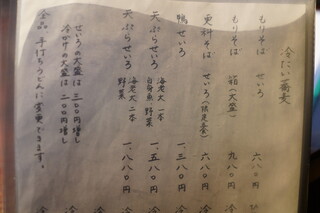 冷たい蕎麦
もりそば せいろ 六八〇円
もりそば 箱(大盛) 九八〇円
更科そば せいろ(限定春) 六八〇円
鴨せいろ 一、三八〇円
天ぷらせいろ 海老大一本 白身魚 野菜 一、五八〇円
天ぷらせいろ 海老大二本 野菜 一、八八〇円
せいろの大盛は 三〇〇円増し
冷かけの大盛は 二〇〇円増し
全品 手打ちうどんに変更できます。